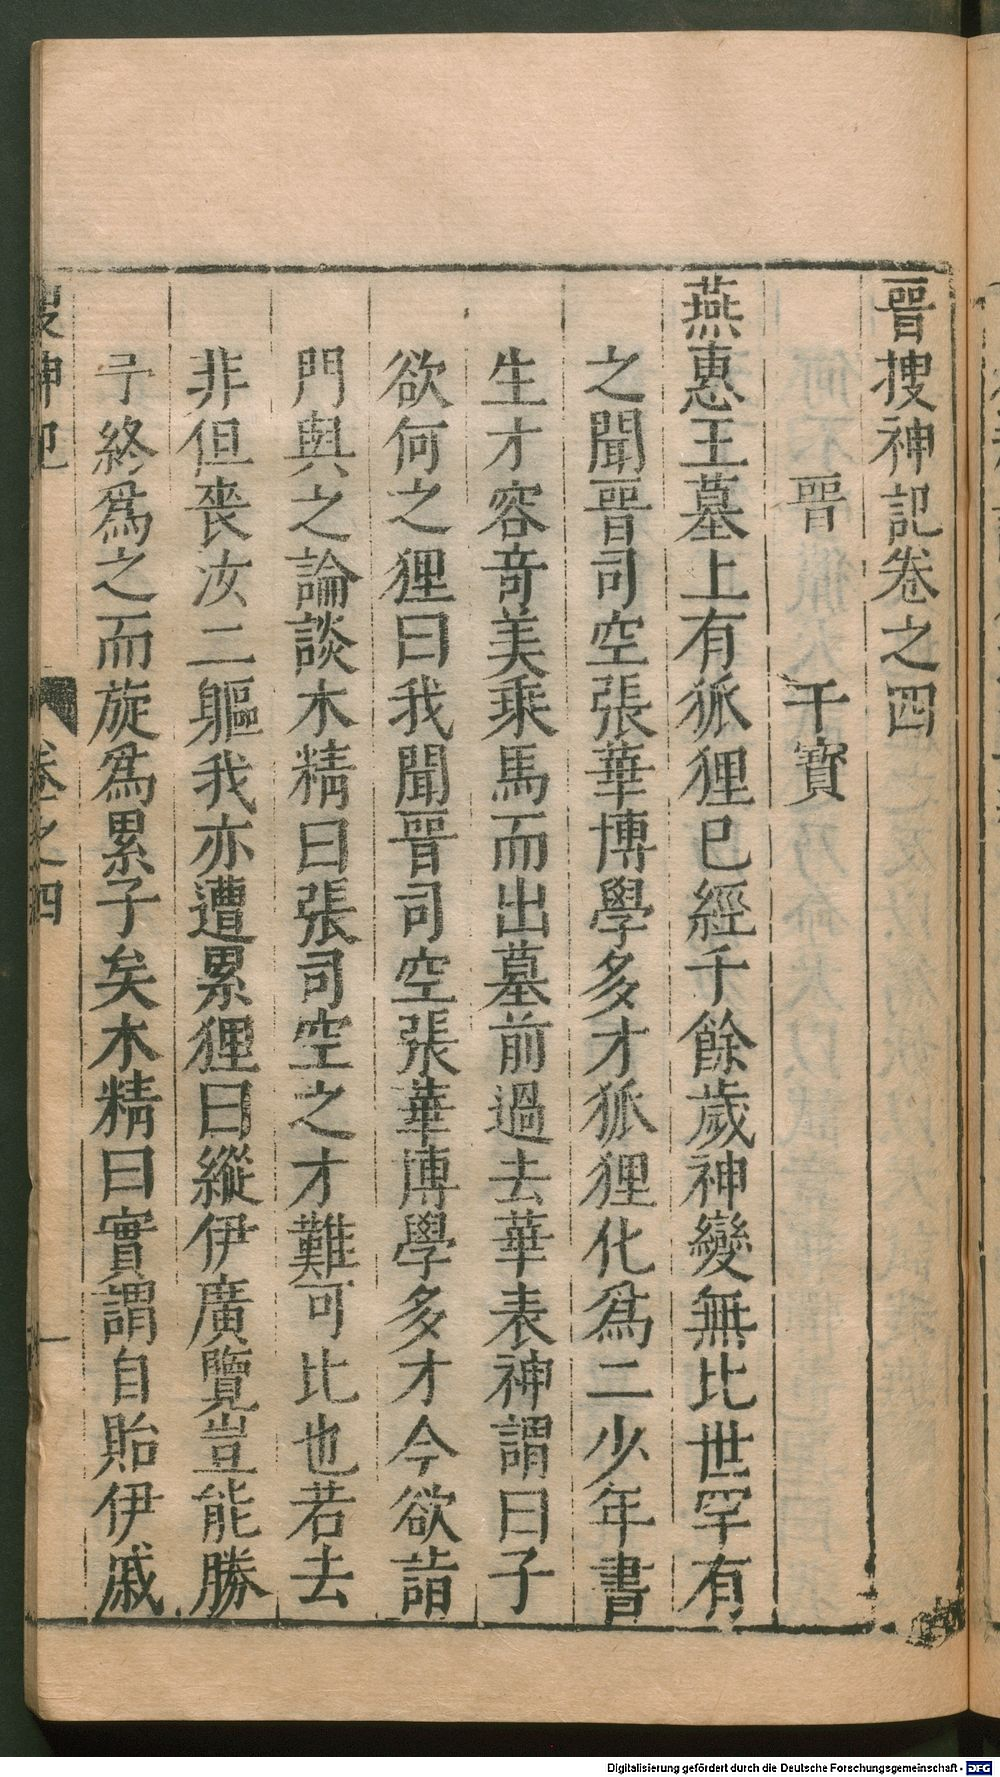 晉搜神記卷之四
晉 干寶
燕惠王墓上有狐狸已經千餘歲神變無比世罕有
之聞晉司空張華博學多才狐狸化爲二少年書
生才容竒美乘馬而出墓前過去華表神謂曰子
欲何之狸曰我聞晉司空張華博學多才今欲詣
門與之論談木精曰張司空之才難可比也若去
非但喪汝二軀我亦遭累狸曰縱伊廣覽豈能勝
予終爲之而旋爲累子矣木精曰實謂自貽伊戚
搜神記 卷之四 一
Digitalisierung gefördert durch die Deutsche Forschungsgemeinschaft - DFG